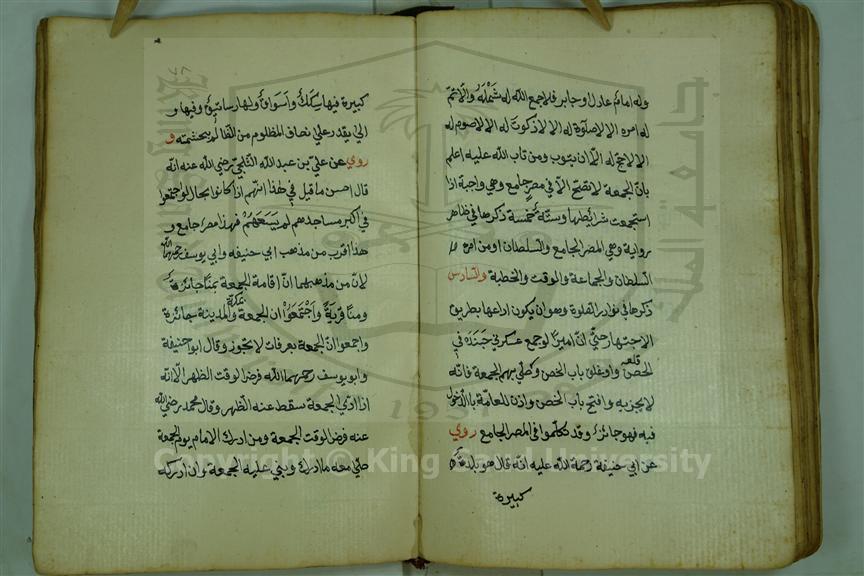 وله امام عادل وجابر فلا جمع الله له شمله ولا اتم
له امره الا لا صلوة له الا لا زكوت له الا لا صوم له
الا لا حج له الا ان يتوب ومن تاب الله عليه اعلم
بان الجمعة لا تصح الا في مصر جامع وهي واجبة اذا
استجمعت شرائطها وستة خمسة ذكرها في ظاهر
رواية وهي المصر الجامع والسلطان او من امره
السلطان والجماعة والوقت والخطبة والسادس
ذكرها في نوادر الصلوة وهو ان يكون اداءها بطريق
الاجتهار حتى ان اميرا لو جمع عسكر في جنده في
الحصن قلعه واو غلق باب الحصن وصلى بهم الجمعة فانه
لا يجزيه وافتح باب الحصن واذن للعامة بالدخول
فيه فهو جائزة وقد تكلموا في المصر الجامع روي
عن ابي حنيفة رحمة الله عليه انه قال هو بلدة
كبيرة
٧٨
كبيرة فيها سكك واسواق ولها رساتيق وفيها و
الي يقدر على نصاف المظلوم من الظالم بحشمته و
روي عن علي بن عبد الله الثلجي رضي الله عنه انه
قال احسن ما قيل في هذا انهم اذا كانوا بحال لو اجتمعوا
في اكبر مساجدهم لم يسعهم فهذا مصر جامع و
هذا اقرب من مذهب ابي حنيفه وابي يوسف رحمهما الله
لان من مذهبهما ان اقامة الجمعة بمنا جائزة
ومنا قرية واجتمعوا ان الجمعة بمكة والمدينة جائزة
واجمعوا ان الجمعة بعرفات لا يجوز وقال ابو حنيفة
وابو يوسف رحمهما الله فرض الوقت الظهر الا انه
اذا ادي الجمعة سقط عنه الظهر وقال محمد رضي الله
عنه فرض الوقت الجمعة ومن ادرك الامام يوم الجمعة
صلي معه ما ادرك وبني عليه الجمعة وان ادركه
جامعة الملك سعود
1957
Copyright © King Saud University